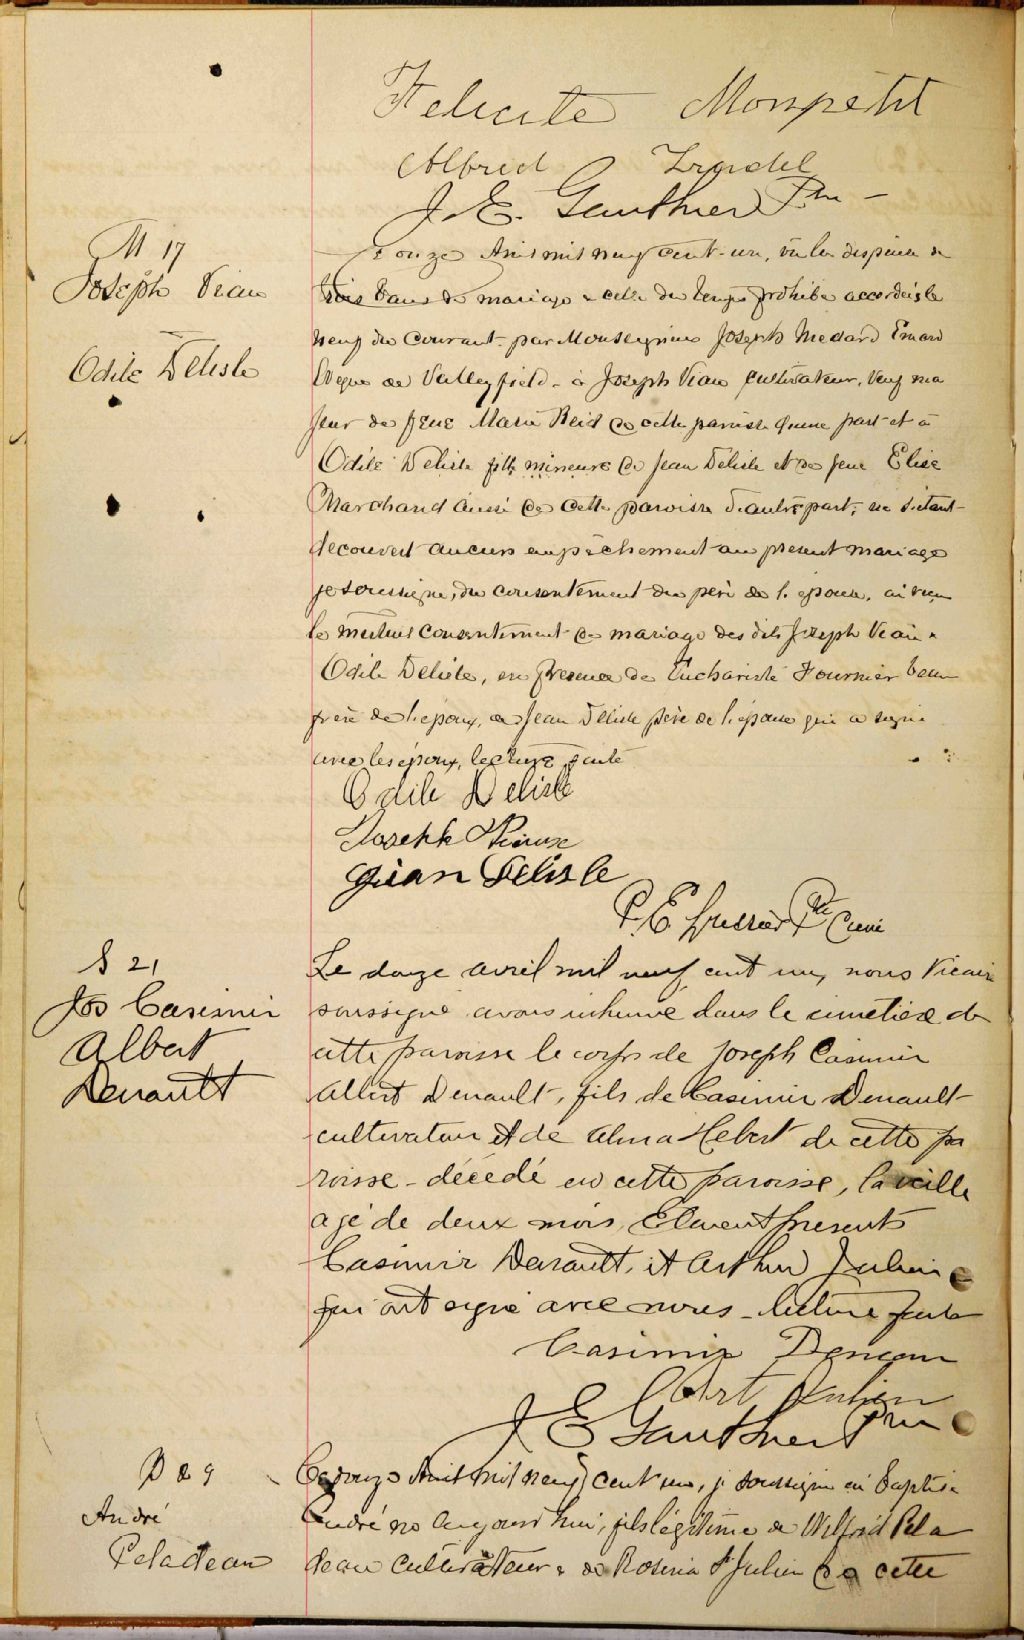 Felicite Monpetit
Alfred Trudel
J. E. Gauthier Ptre
M 17
Joseph Viau
Odile Delisle
onze Avril mil neuf cent-un, vu la dispense de
trois bans de mariage & celle du temps prohibé accordés le
neuf du courant par Monseigneur Joseph Medard Emard
Evêque de Valleyfield - à Joseph Viau cultivateur, veuf ma
jeur de feue Marie Reid de cette paroisse d'une part et à
Odile Delisle fille mineure de Jean Delisle et de feue Elise
Marchand aussi de cette paroisse d'autre part; ne s'étant
découvert aucun empêchement au présent mariage
je soussigné, du consentement du père de l'épouse, ai reçu
le mutuel consentement de mariage des dits Joseph Viau &
Odile Delisle, en presence de Euchariste Fournier beau
frère de l'époux, de Jean Delisle père de l'épouse qui a signé
avec les époux, lecture faite
Odile Delisle
Joseph
Jean Delisle
P. E. Lussier Ptre Curé
S 21
Jos Casimir
Albert
Denault
Le douze avril mil neuf cent un, nous Vicaire
soussigné avons inhumé dans le cimetière de
cette paroisse le corps de Joseph Casimir
Albert Denault, fils de Casimir Denault
cultivateur et de Alma Hebert de cette pa
roisse - décédé en cette paroisse, la veille
agé de deux mois, Etaient presents
Casimir Denault, et Arthur Julien
qui ont signé avec nous - lecture faite
Casimir Denau
Art Julien
J E Gauthier Ptre
B 29
André
Peladeau
Ce douze Avril mil neuf cent un, je soussigné ai baptisé
André né aujourd'hui, fils légitime de Wilfrid Pela
deau cultivateur & de Rosina St Julien de cette